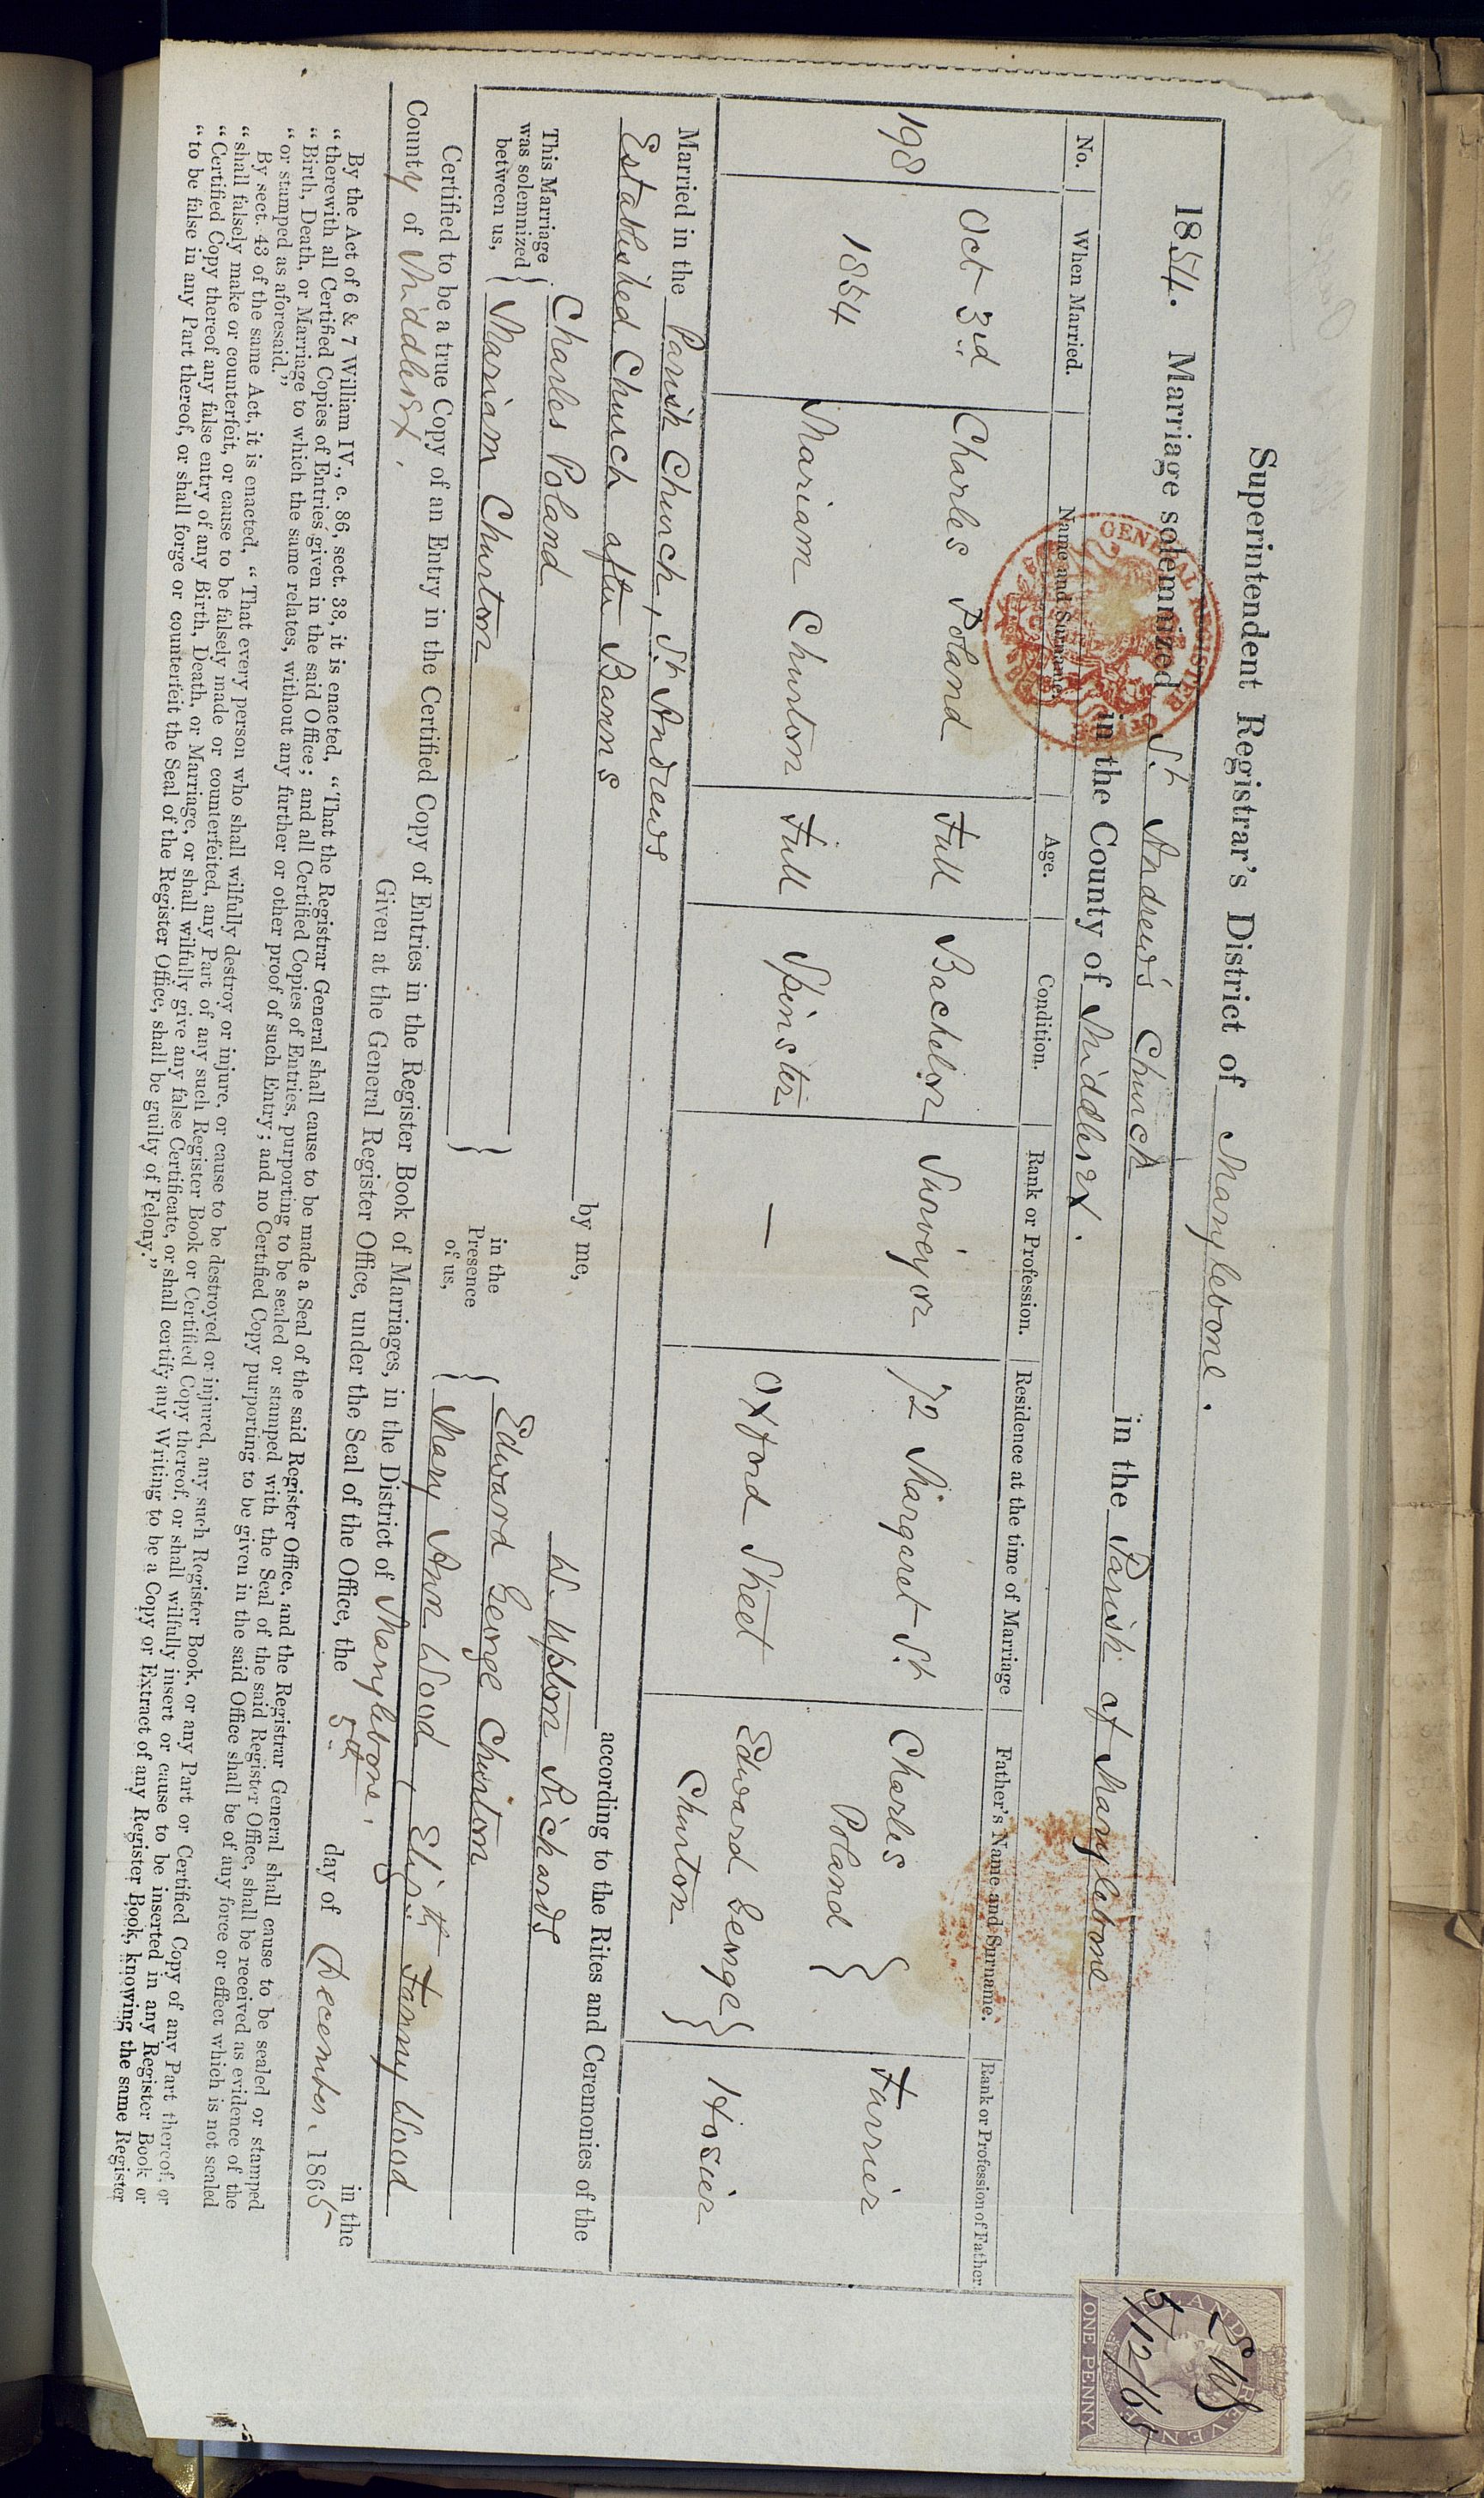 Superintendent Registrar's District of Marylebone.
1854. Marriage solemnized St. Andrew's Church in the Parish of Marylebone
in the County of Middlesex.
No. When Married. Name and Surname. Age. Condition. Rank or Profession. Residence at the time of Marriage Father's Name and Surname. Rank or Profession of Father
198 Oct 3rd 1854
Charles Poland Full Bachelor Surveyor 72 Margaret St. Charles Poland } Furrier
Mariam Churton Full Spinster — Oxford Street Edward George Churton } Hosier
Married in the Parish Church, St. Andrews according to the Rites and Ceremonies of the
Established Church after Banns by me,
W. Upton Richards
This Marriage was solemnized between us, { Charles Poland
Mariam Churton }
in the Presence of us, { Edward George Churton
Mary Ann Wood, Elizth Fanny Wood
Certified to be a true Copy of an Entry in the Certified Copy of Entries in the Register Book of Marriages, in the District of Marylebone, in the
County of Middlesex. Given at the General Register Office, under the Seal of the Office, the 5th day of December, 1865
By the Act of 6 & 7 William IV., c. 86, sect. 38, it is enacted, "That the Registrar General shall cause to be made a Seal of the said Register Office, and the Registrar General shall cause to be sealed or stamped
"therewith all Certified Copies of Entries given in the said Office; and all Certified Copies of Entries, purporting to be sealed or stamped with the Seal of the said Register Office, shall be received as evidence of the
"Birth, Death, or Marriage to which the same relates, without any further or other proof of such Entry; and no Certified Copy purporting to be given in the said Office shall be of any force or effect which is not sealed
"or stamped as aforesaid."
By sect. 43 of the same Act, it is enacted, "That every person who shall wilfully destroy or injure, or cause to be destroyed or injured, any such Register Book, or any Part or Certified Copy of any Part thereof, or
"shall falsely make or counterfeit, or cause to be falsely made or counterfeited, any Part of any such Register Book or Certified Copy thereof, or shall wilfully insert or cause to be inserted in any Register Book or
"Certified Copy thereof any false entry of any Birth, Death, or Marriage, or shall wilfully give any false Certificate, or shall certify any Writing to be a Copy or Extract of any Register Book, knowing the same Register
"to be false in any Part thereof, or shall forge or counterfeit the Seal of the Register Office, shall be guilty of Felony."
GENERAL REGISTER
INLAND REVENUE
ONE PENNY
5/12/65